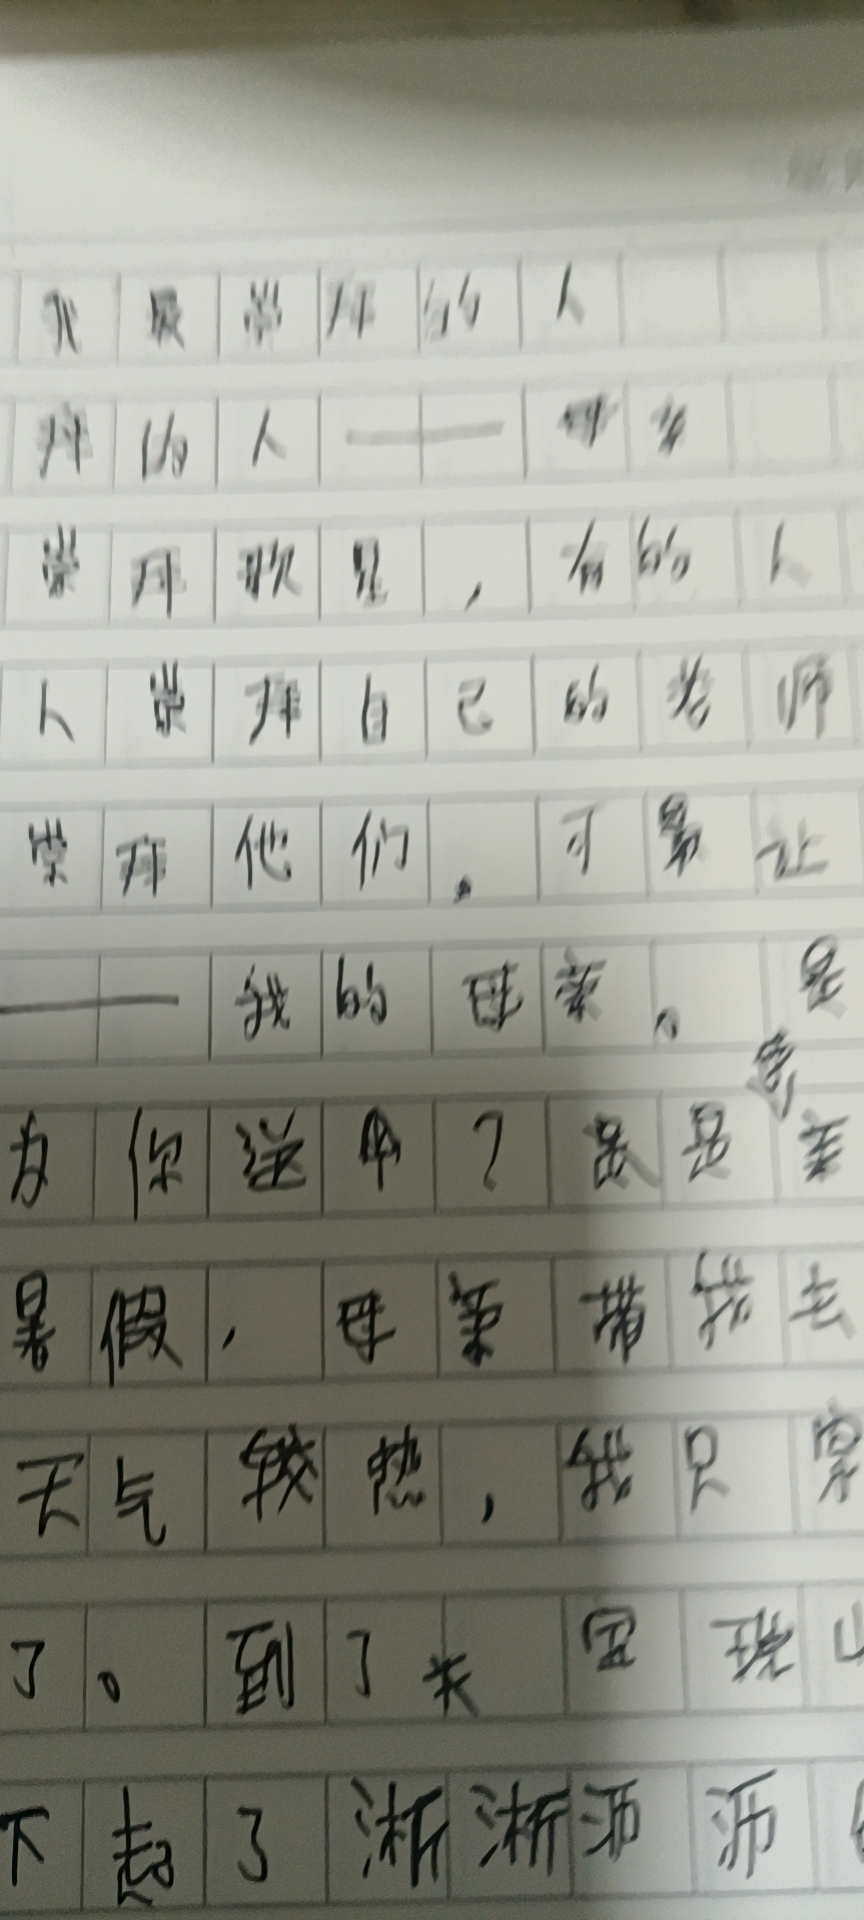 我最崇拜的人
拜的人——母亲
崇拜歌星,有的人
人崇拜自己的老师
崇拜他们。可最让
——我的母亲。是
为你送伞?是是亲
暑假,母亲带我去
天气较热,我只穿
了。到了
下起了淅淅沥沥